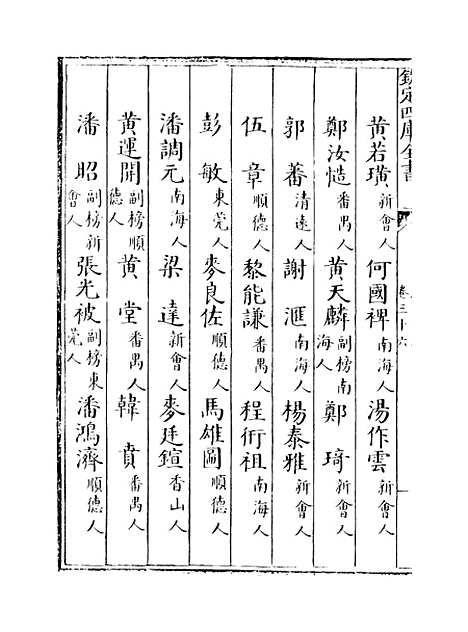 欽定四庫全書
卷三十六
黃若璜 新會人 何國裨 南海人 湯作雲 新會人
鄭汝愷 番禺人 黃天麟 副榜南海人 鄭琦 新會人
郭蕃 清遠人 謝滙 南海人 楊泰雅 新會人
伍章 順德人 黎能謙 番禺人 程衍祖 南海人
彭敏 東莞人 麥良佐 順德人 馬雄圖 順德人
潘調元 南海人 梁達 新會人 麥廷鍹 香山人
黃運開 副榜順德人 黃堂 番禺人 韓賁 番禺人
潘昭 副榜新會人 張光被 副榜東莞人 潘鴻濟 順德人